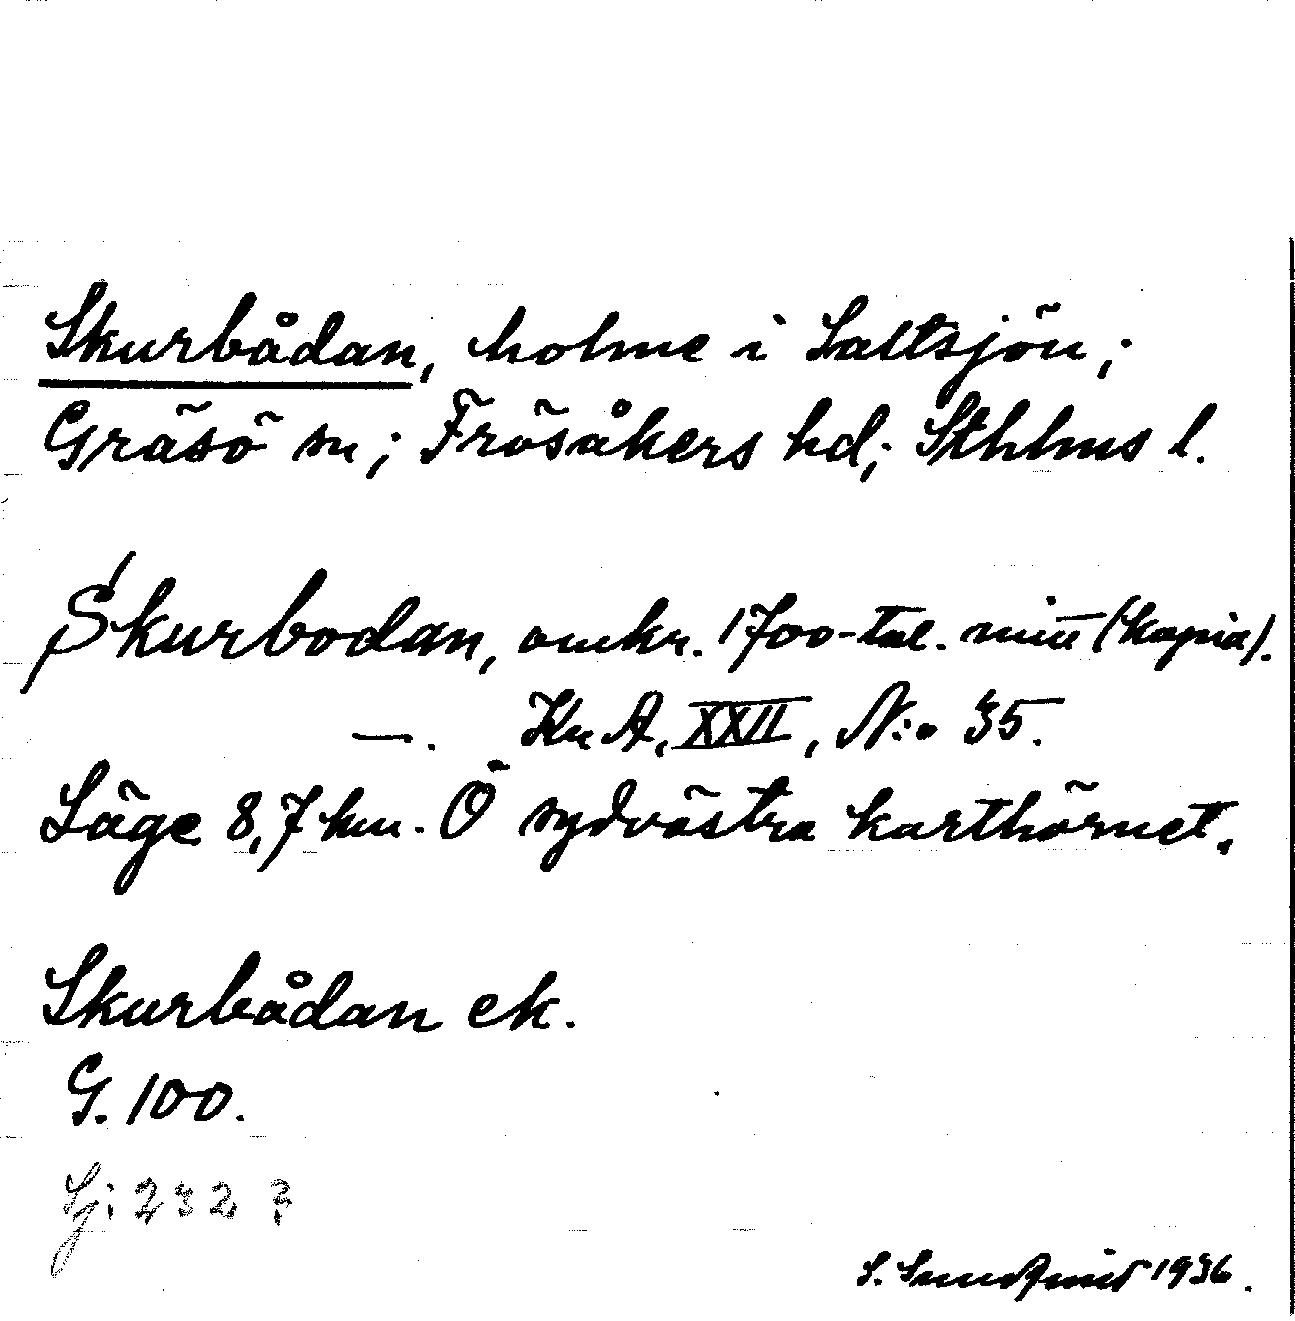 Skurbådan, holme i Saltsjön;
Gräsö sn; Frösåkers hd; Sthlms l.
Skurbodan, omkr. 1700-tal. (kopia).
—. Kr A, XXII, N:o 35.
Läge 8,7 km. Ö sydvästra karthörnet.
Skurbådan ek.
G. 100.
Lj: 232 ?
S. Sundqvist 1936.